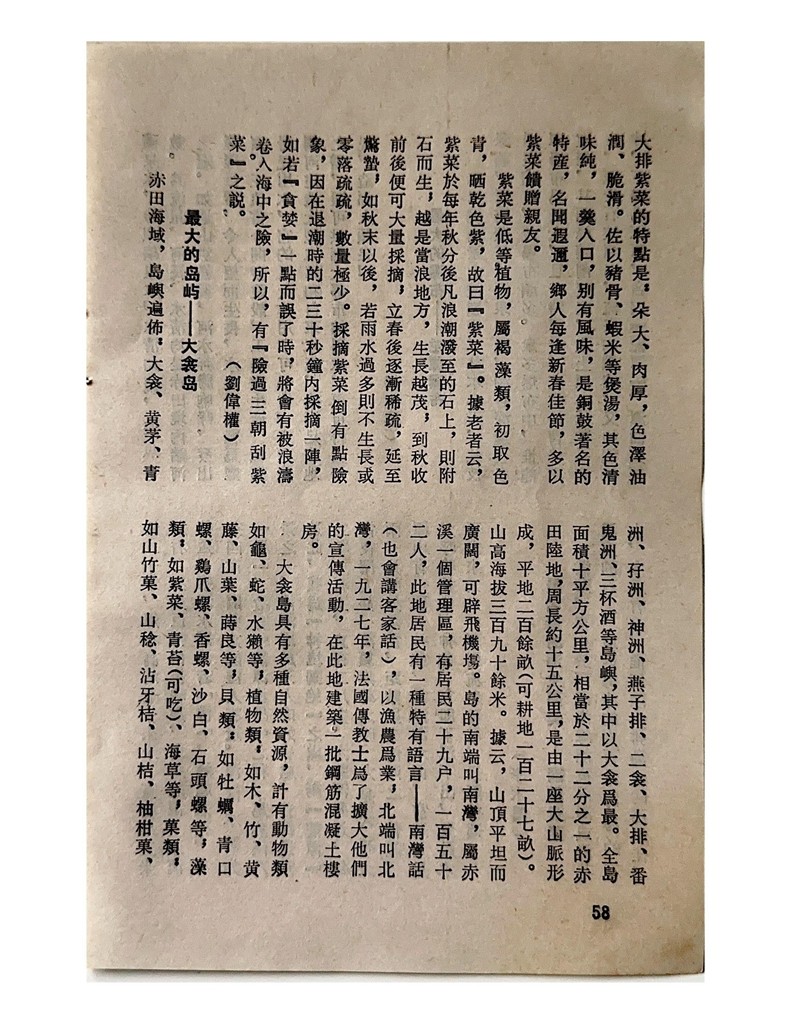 大排紫菜的特點是:朵大、肉厚,色澤油
潤、脆滑。佐以豬骨、蝦米等煲湯,其色清
味純,一羹入口,別有風味,是銅鼓著名的
特産,名聞遐邇,鄉人每逢新春佳節,多以
紫菜饋贈親友。
紫菜是低等植物,屬褐藻類,初取色
青,晒乾色紫,故曰『紫菜』。據老者云,
紫菜於每年秋分後凡浪潮潑至的石上,則附
石而生,越是當浪地方,生長越茂,到秋收
前後便可大量採摘,立春後逐漸稀疏,延至
驚蟄,如秋末以後,若雨水過多則不生長或
零落疏疏,數量極少。採摘紫菜倒有點險
象,因在退潮時的二三十秒鐘内採摘一陣,
如若『貪婪』一點而誤了時,將會有被浪濤
卷入海中之險,所以,有『險過三朝刮紫
菜』之説。
(劉偉權)
最大的岛屿——大衾岛
赤田海域,島嶼遍佈:大衾、黄茅、青
洲、孖洲、神洲、燕子排、二衾、大排、番
鬼洲、三杯酒等島嶼,其中以大衾爲最。全島
面積十平方公里,相當於二十二分之一的赤
田陸地,周長約十五公里,是由一座大山脈形
成,平地二百餘畝(可耕地一百二十七畝)。
山高海拔三百九十餘米。據云,山頂平坦而
廣闊,可辟飛機塲。島的南端叫南灣,屬赤
溪一個管理區,有居民二十九户,一百五十
二人,此地居民有一種特有語言——南灣話
(也會講客家話),以漁農爲業,北端叫北
灣,一九二七年,法國傳教士爲了擴大他們
的宣傳活動,在此地建築一批鋼筋混凝土樓
房。
大衾島具有多種自然資源,計有動物類
如龜、蛇、水獺等,植物類:如木、竹、黄
藤、山葉、蒔良等,貝類:如牡蠣、青口
螺、鷄爪螺、香螺、沙白、石頭螺等,藻
類:如紫菜、青苔(可吃)、海草等,菓類:
如山竹菓、山稔、沾牙桔、山桔、柚柑菓、
58